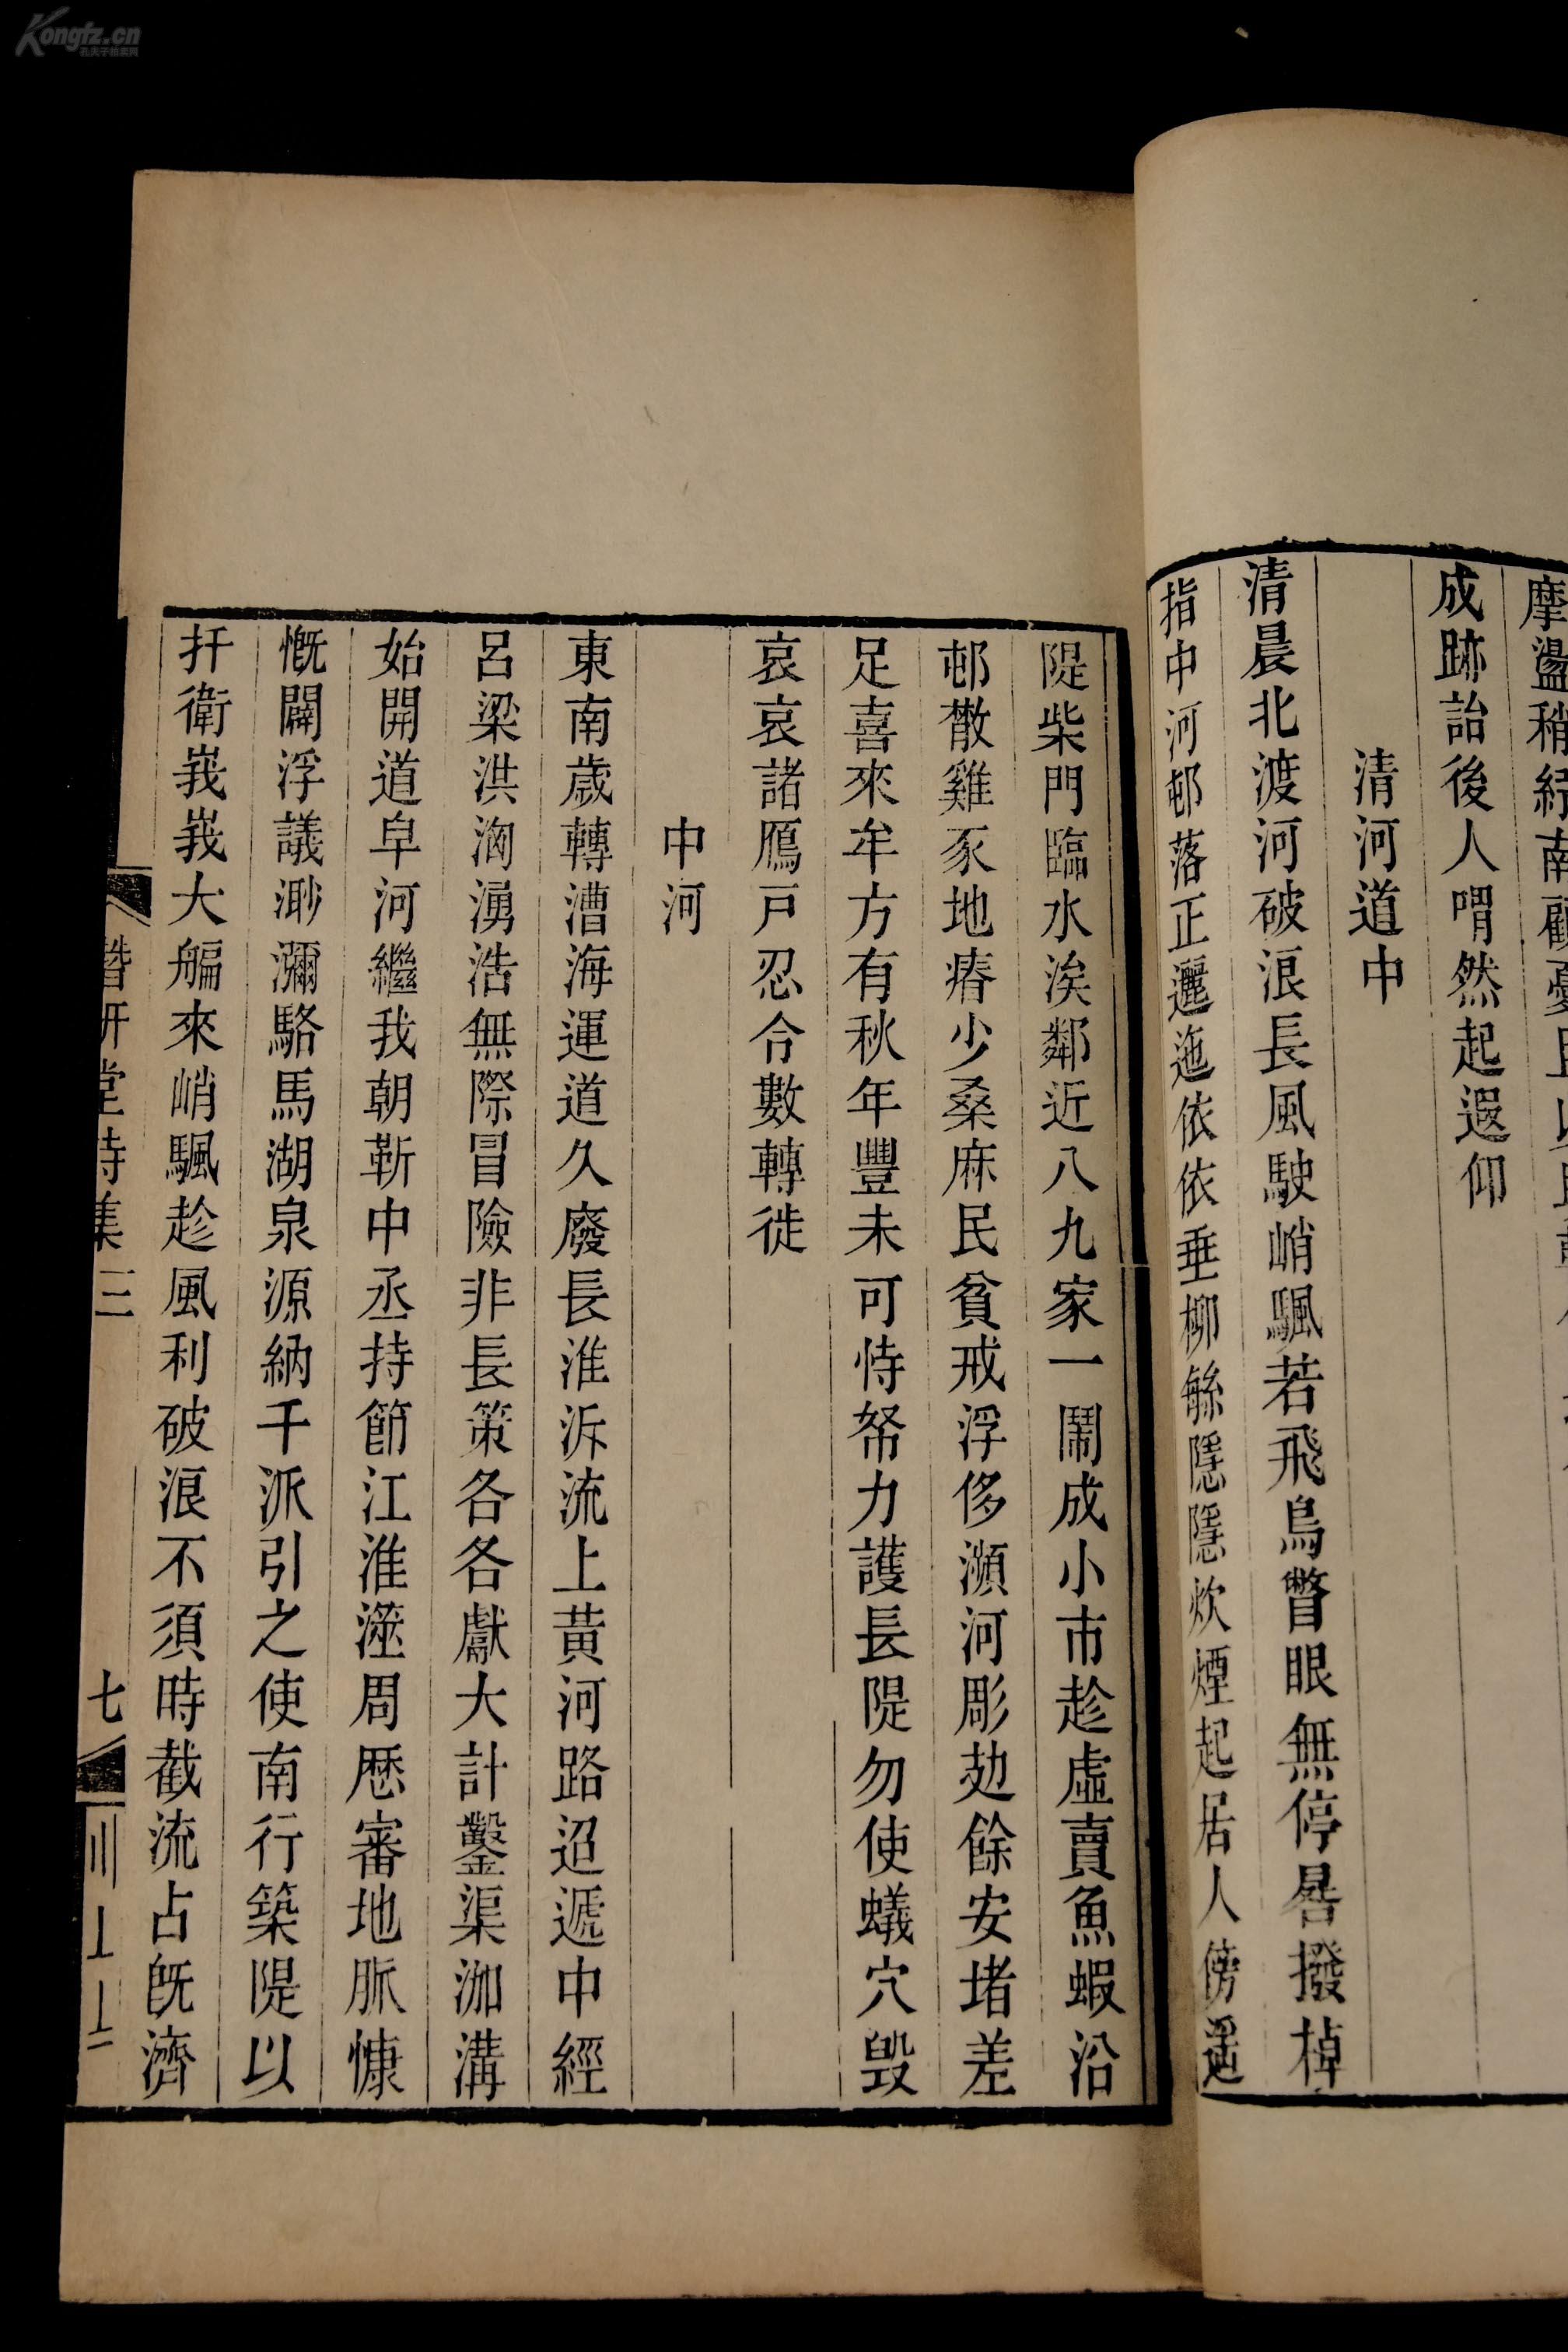 Kongfz.cn
孔夫子拍卖网
成跡詒後人喟然起遐仰
清河道中
清晨北渡河破浪長風駛峭颿若飛鳥瞥眼無停晷撥棹
指中河邨落正邐迤依依垂柳緜隱隱炊煙起居人傍遥
隄柴門臨水涘鄰近八九家一鬧成小市趁虛賣魚蝦沿
邨散雞豕地瘠少桑麻民貧戒浮侈瀕河彫劫餘安堵差
足喜來牟方有秋年豐未可恃努力護長隄勿使蟻穴毁
哀哀諸鴈戸忍令數轉徙
中河
東南歲轉漕海運道久廢長淮泝流上黄河路迢遞中經
呂梁洪洶湧浩無際冒險非長策各各獻大計鑿渠泇溝
始開道皁河繼我朝靳中丞持節江淮澨周歷審地脈慷
慨闢浮議渺瀰駱馬湖泉源納千派引之使南行築隄以
扞衛峩峩大艑來峭颿趁風利破浪不須時截流占旣濟
潛研堂詩集三
七